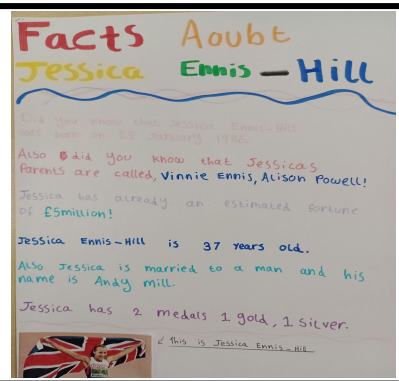 Facts Aoubt
Jessica Ennis - Hill
Did you know that Jessica Ennis-Hill
was born on 28 January 1986.
Also did you know that Jessicas
Parents are called, Vinnie Ennis, Alison Powell!
Jessica has already an estimated fortune
of £5million!
Jessica Ennis-Hill is 37 years old.
Also Jessica is married to a man and his
name is Andy mill.
Jessica has 2 medals 1 gold, 1 silver.
this is Jessica Ennis-Hill